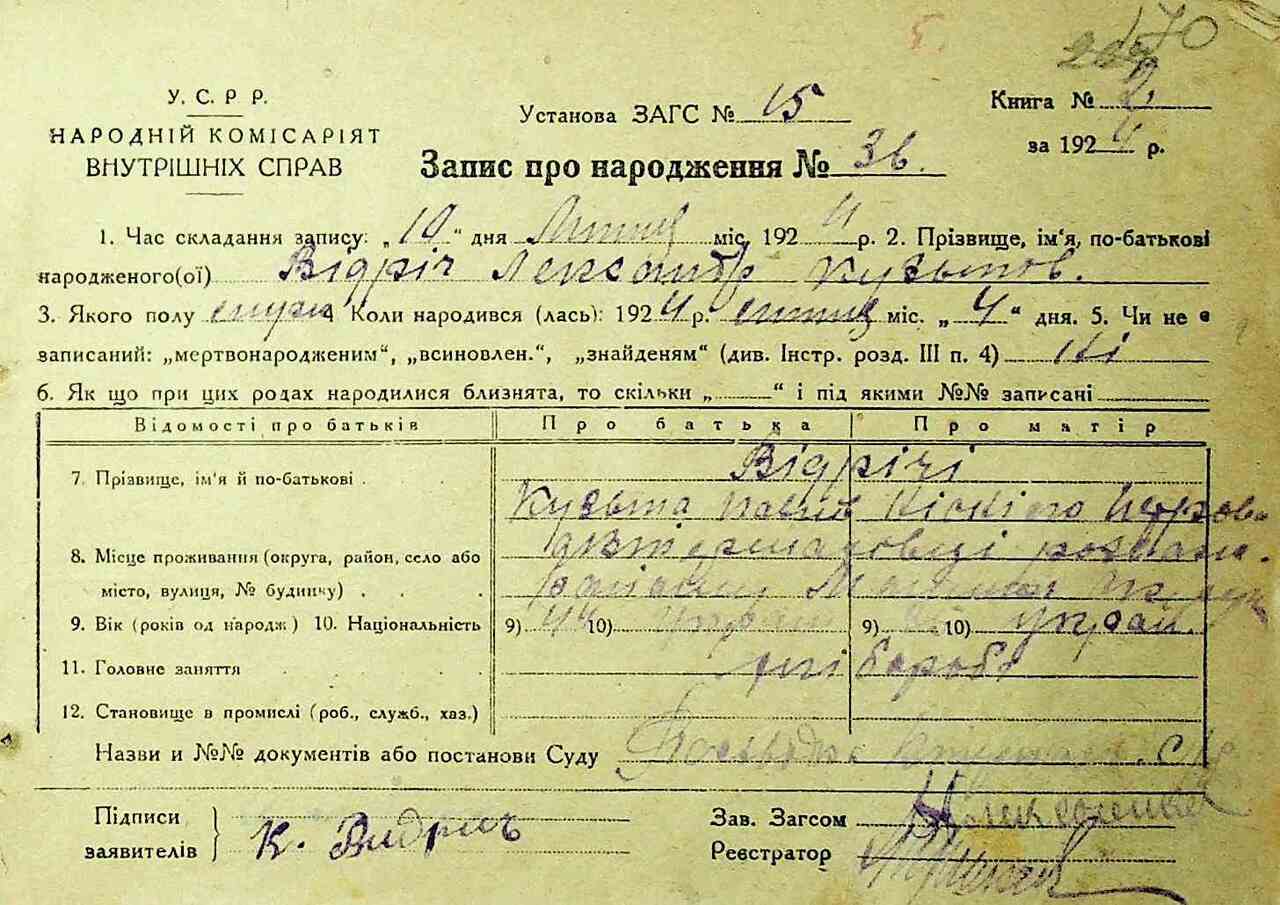 470
У. С. Р Р.
НАРОДНІЙ КОМІСАРІЯТ
ВНУТРІШНІХ СПРАВ
Установа ЗАГС № 15
Книга № 2
за 1924 р.
Запис про народження № 36.
1. Час складання запису: „10“ дня міс. 1924 р. 2. Прізвище, ім‘я, по-батькові
народженого(ої) Відріч Лександр Кузьмов.
3. Якого полу 4 Коли народився (лась): 1924 р. міс. „4“ дня. 5. Чи не є
записаний: „мертвонародженим“, „всиновлен.“, „знайденям“ (див. Інстр. розд. III п. 4) Ні
6. Як що при цих родах народилися близнята, то скільки „ “ і під якими №№ записані
Відомості про батьків Про батька Про матір
7. Прізвище, ім‘я й по-батькові . Відрічі
Кузьма
8. Місце проживання (округа, район, село або
місто, вулиця, № будинку) . . .
9. Вік (років од народж) 10. Національність 9) 44 10) 9) 10) украй.
11. Головне заняття . . хліборобі
12. Становище в промислі (роб., служб., хаз.)
Назви и №№ документів або постанови Суду
Підписи
заявителів
К. Видричь
Зав. Загсом
Реєстратор